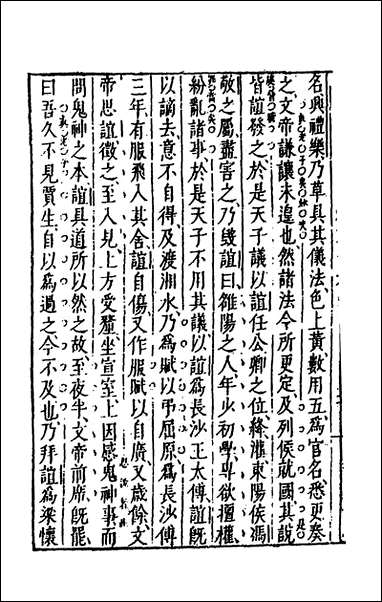 名興禮樂乃草具其儀法色上黃數用五爲官名悉更奏
之文帝謙讓未遑也然諸法令所更定及列侯就國其說
皆誼發之於是天子議以誼任公卿之位絳灌東陽侯馮
敬之屬盡害之乃毀誼曰雒陽之人年少初學專欲擅權
紛亂諸事於是天子不用其議以誼爲長沙王太傅誼旣
以謫去意不自得及渡湘水乃爲賦以弔屈原爲長沙傅
三年有服飛入其舍誼自傷又作服賦以自廣又歲餘文
帝思誼徵之至入見上方受釐坐宣室上因感鬼神事而
問鬼神之本誼具道所以然之故至夜半文帝前席旣罷
曰吾久不見賈生自以爲過之今不及也乃拜誼爲梁懷